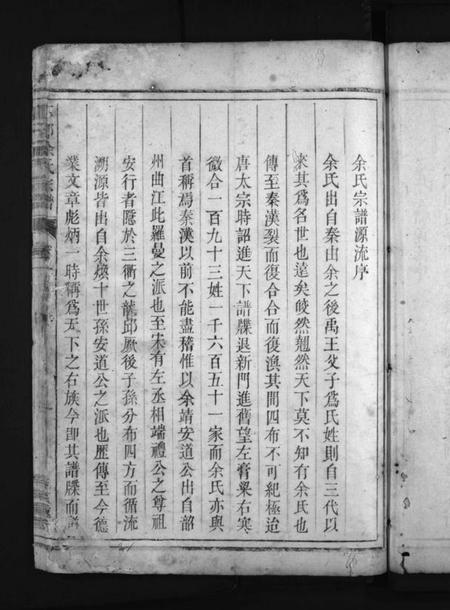 余氏宗譜源流序
余氏出自秦由余之後禹王支子為氏姓則自三代以
來其為名世也遠矣皎然翹然天下莫不知有余氏也
傳至秦漢裂而復合合而復渙其間四布不可紀極迨
唐太宗時詔進天下譜牒退新門進舊望左膏粱右寒
微合一百九十三姓一千六百五十一家而余氏亦與
首稱焉秦漢以前不能盡稽惟以余靖安道公出自韶
州曲江此羅曼之派也至宋有左丞相端禮公之尊祖
安行者隱於三衢之龍邱厥後子孫分布四方而循流
溯源皆出自余㷡十世孫安道公之派也歷傳至今德
業文章彪炳一時稱為天下之右族今卽其譜牒而
余氏宗譜